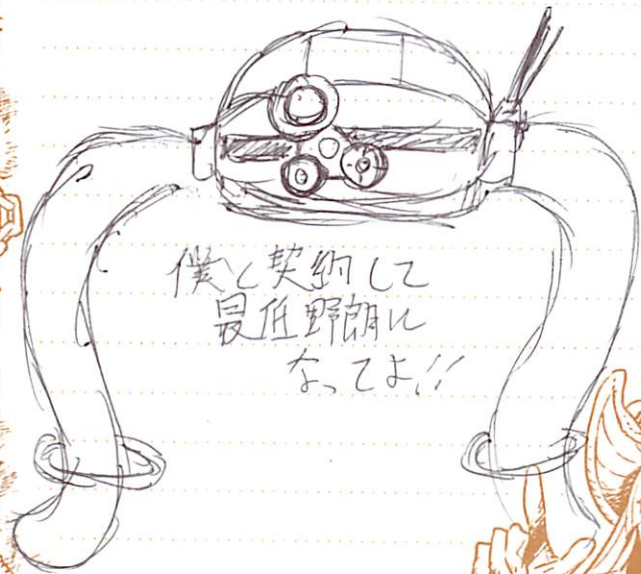 僕と契約して
最低野郎に
なってよ!!